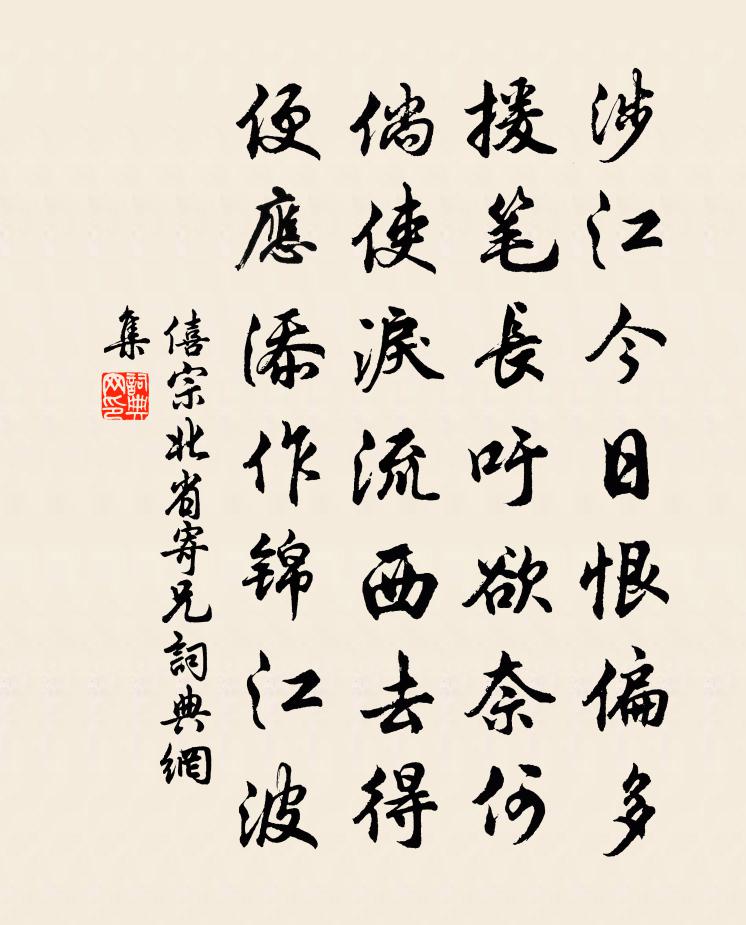 涉江今日恨偏多
援笔長吁欲奈何
倘使淚流西去得
便應添作錦江波
僖宗北省寄兄詞典網
集
詞典
网印